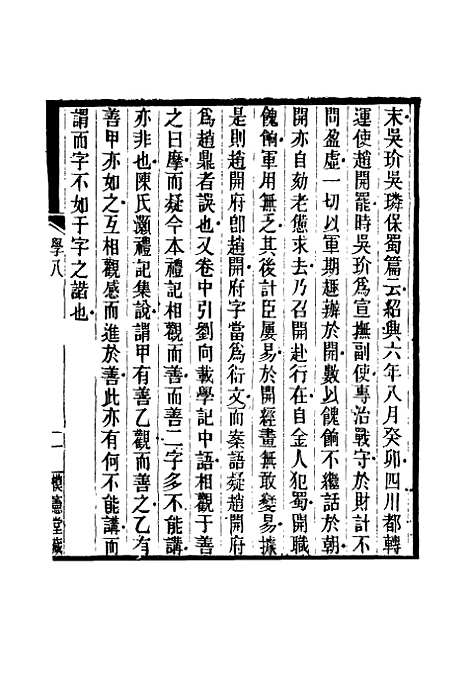 末吳玠吳璘保蜀篇云紹興六年八月癸卯四川都轉
運使趙開罷時吳玠為宣撫副使專治戰守於財計不
問盈虛一切以軍期趣辦於開數以餽餉不繼話於朝
開亦自劾老憊求去乃召開赴行在自金人犯蜀開職
餽餉軍用無乏其後計臣屢易於開經畫無敢變易據
是則趙開府卽趙開府字當為衍文而秦語疑趙開府
為趙鼎者誤也又卷中引劉向載學記中語相觀于善
之曰摩而疑今本禮記相觀而善而善二字多不能講
亦非也陳氏灝禮記集說謂甲有善乙觀而善之乙有
善甲亦如之互相觀感而進於善此亦有何不能講而
謂而字不如于字之諧也
學八
二
懷憲堂藏